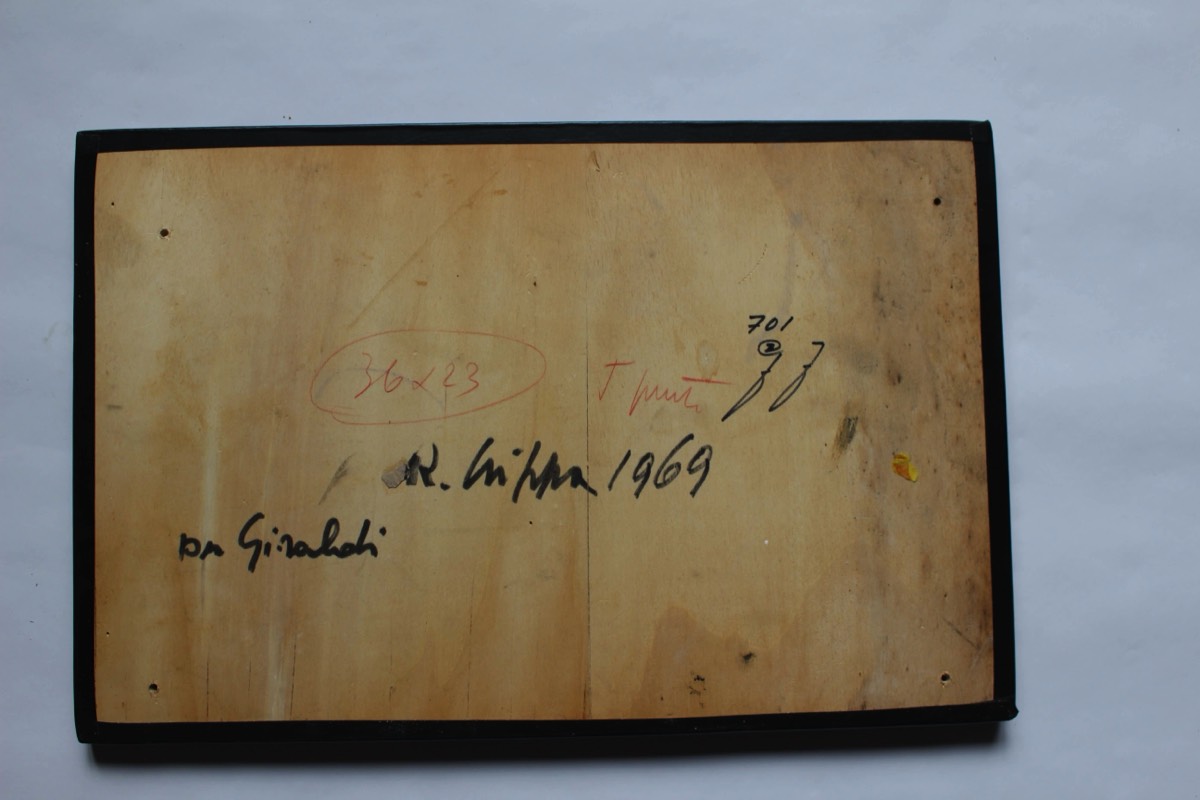 701
2
36x23
R. Crippa 1969
Dr Giraldi